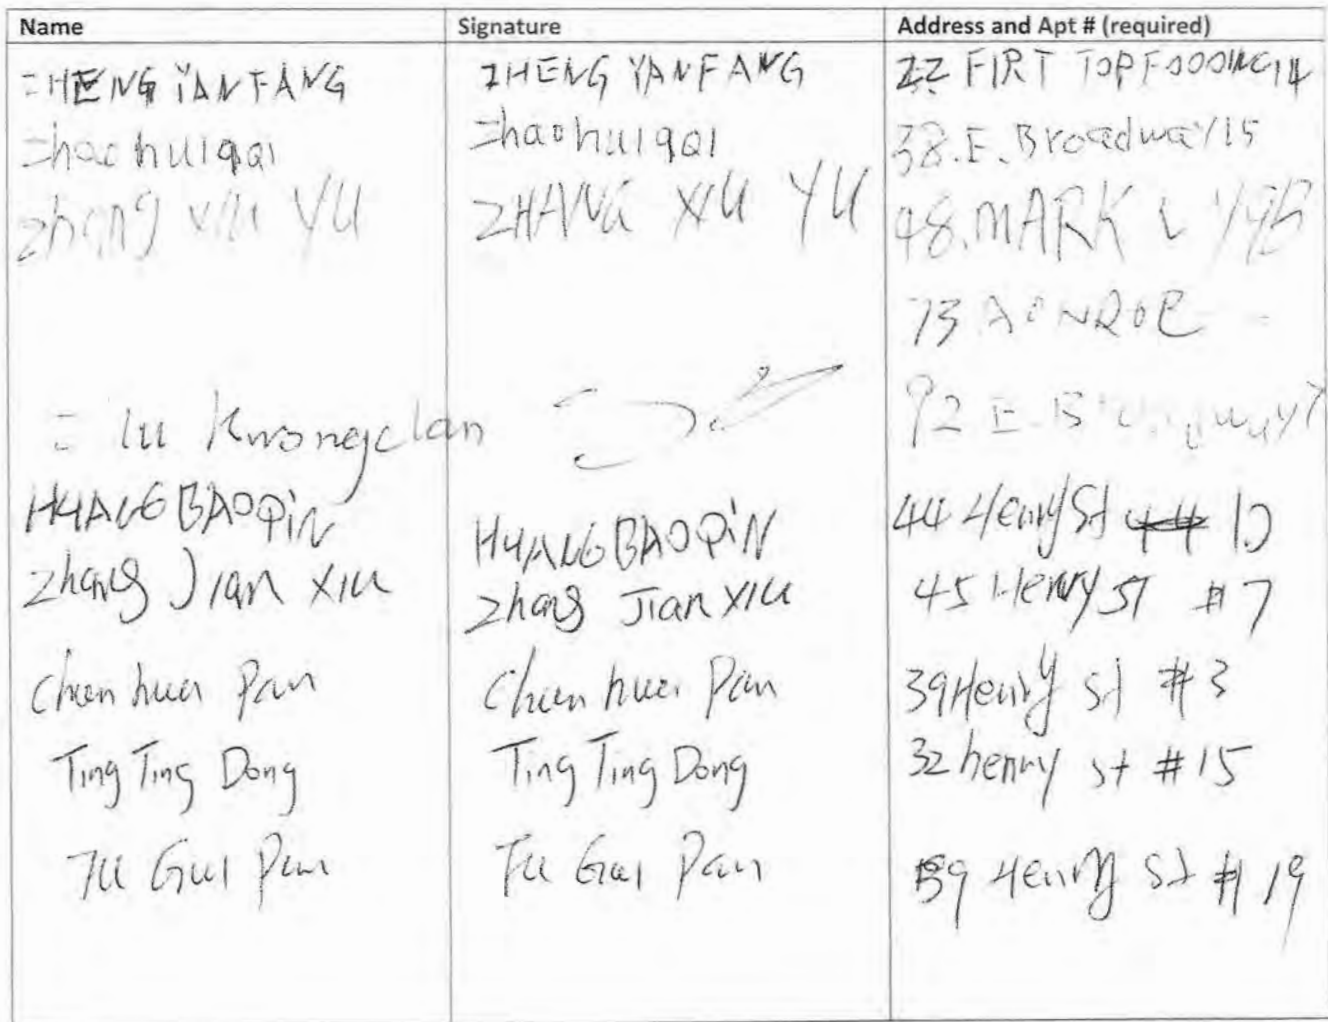 Name Signature Address and Apt # (required)
ZHENG YANFANG ZHENG YANFANG 22 FIRT TOPFOOOING14
Zhaohuiqai Zhaohuiqai 38.E.Broadway15
Zhang XIU YU ZHANG XIU YU 98.MARK
73
Kwong 92 E.B
HUANG BAOQIN HUANG BAOQIN 44 Henry St 10
Zhang Jian XIU Zhang Jian XIU 45 Henry ST #7
Chun huei Pan Chun huei Pan 39 Henry St #3
Ting Ting Dong Ting Ting Dong 32 henry st #15
Fu Gui Pan Fu Gui Pan 39 Henry St #19